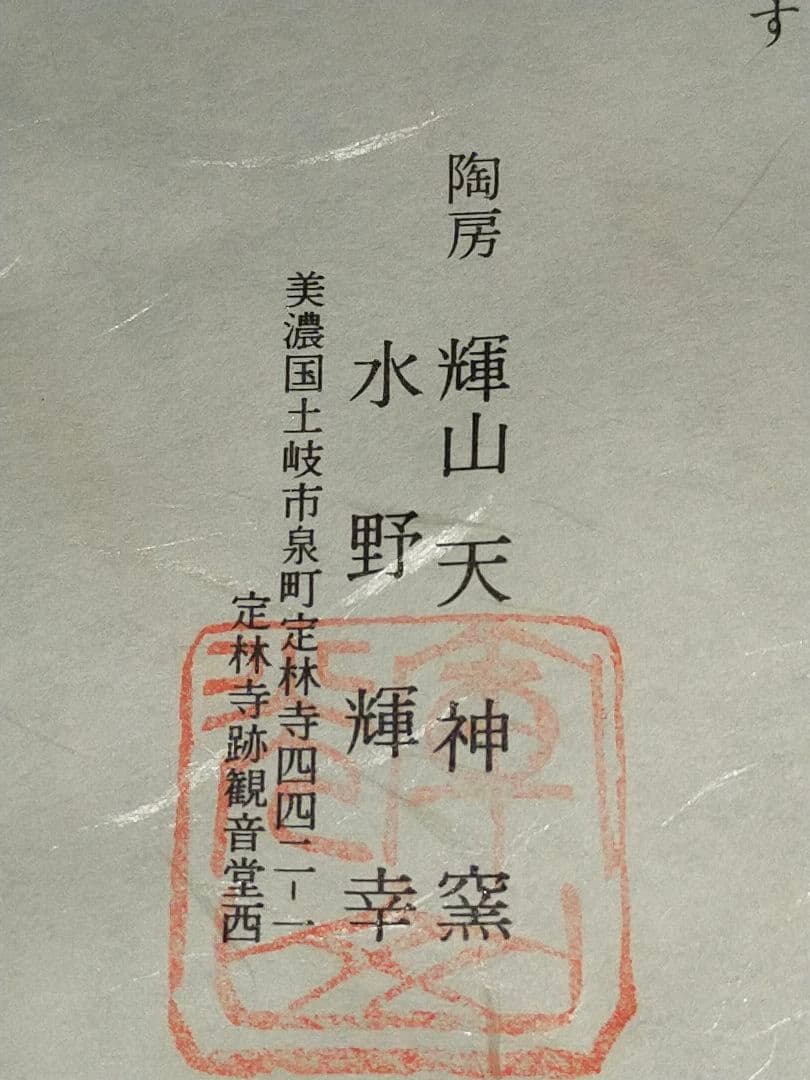 す
陶房 輝山天神窯
水野輝幸
美濃国土岐市泉町定林寺四四二-一
定林寺跡観音堂西